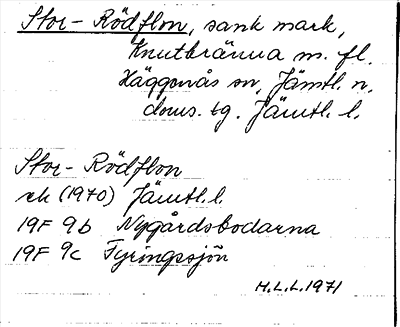 Stor-Rödflon, sank mark,
Knutbränna m. fl.
Häggenås sn, Jämtl. n.
doms. tg. Jämtl. l.
Stor-Rödflon
rk (1970) Jämtl. l.
19F 9b Nygårdsbodarna
19F 9c Fyringssjön
H.L.L. 1971